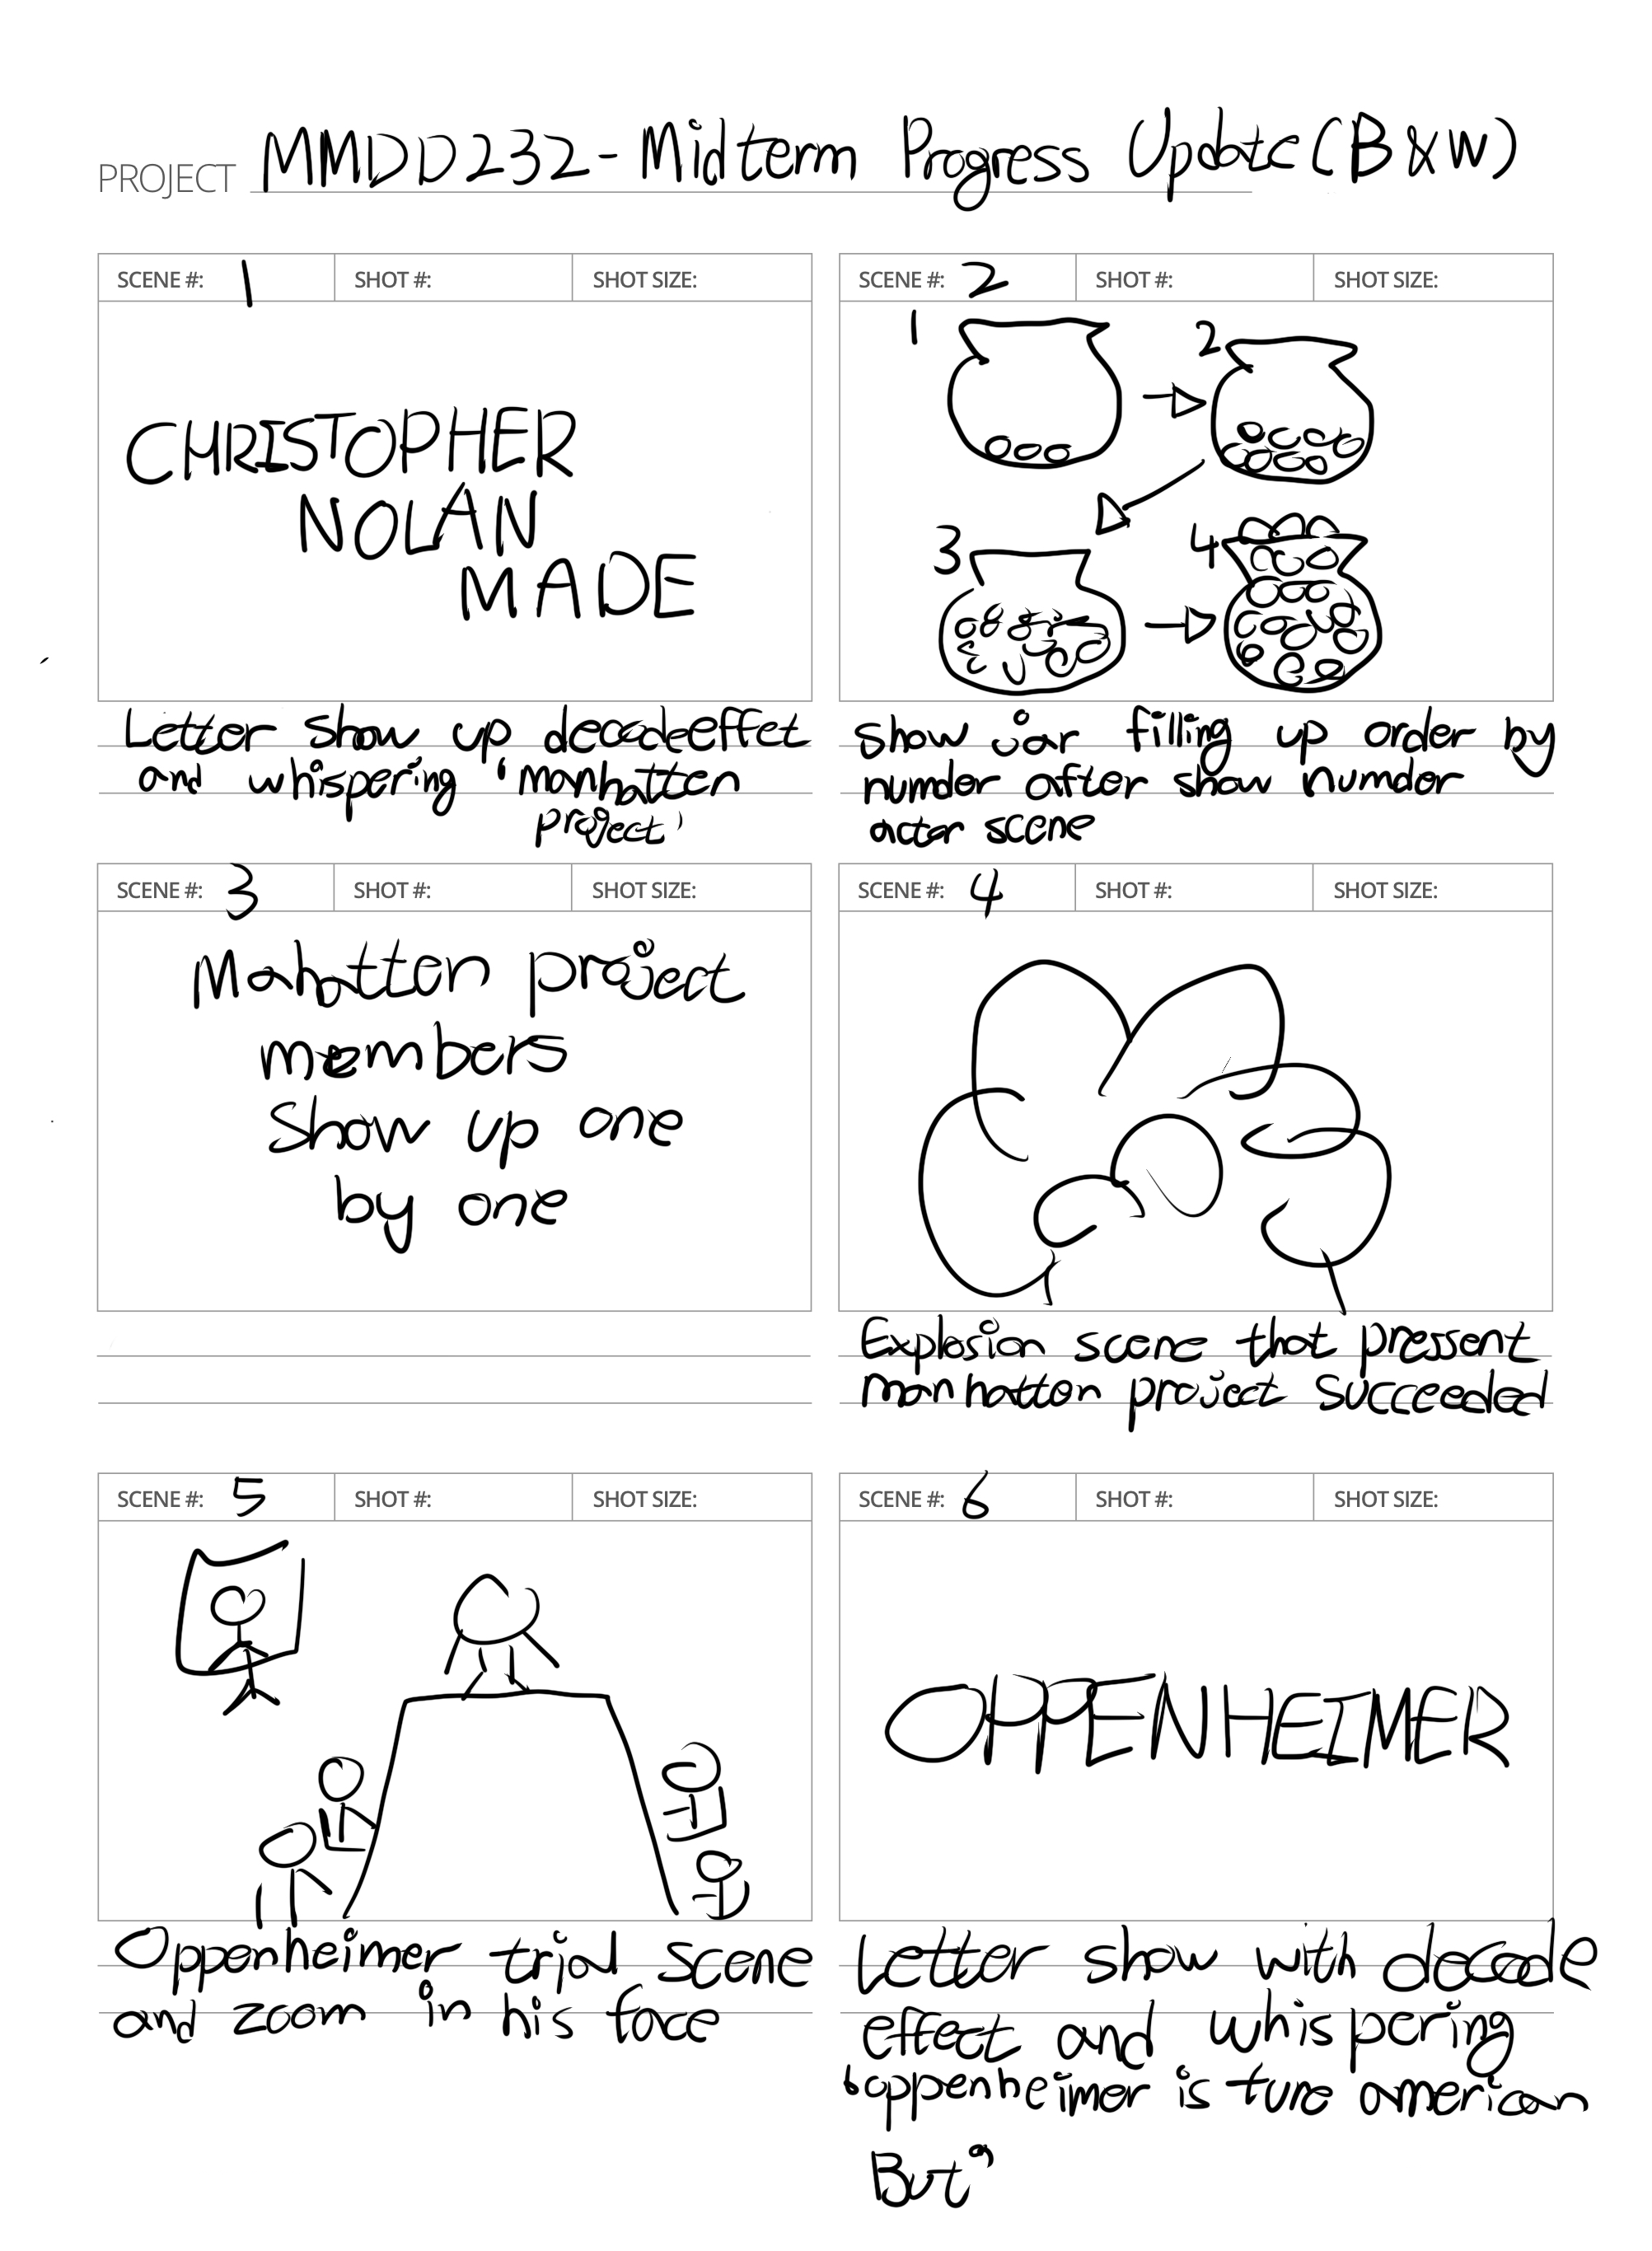 PROJECT MMDD232 - Midterm Progress Update (B&W)
SCENE #: 1 SHOT #: SHOT SIZE:
CHRISTOPHER
NOLAN
MADE
Letter show up decodeeffet
and whispering 'manhatten
project'
SCENE #: 2 SHOT #: SHOT SIZE:
1 2
3 4
show jar filling up order by
numder after show numdor
actor scene
SCENE #: 3 SHOT #: SHOT SIZE:
Mahatten project
members
Show up one
by one
SCENE #: 4 SHOT #: SHOT SIZE:
Explosion scene that pressent
manhatton project succeeded
SCENE #: 5 SHOT #: SHOT SIZE:
Oppenheimer trial scene
and zoom in his face
SCENE #: 6 SHOT #: SHOT SIZE:
OPPENHEIMER
Letter show with decode
effect and whispering
"oppenheimer is ture american
But"